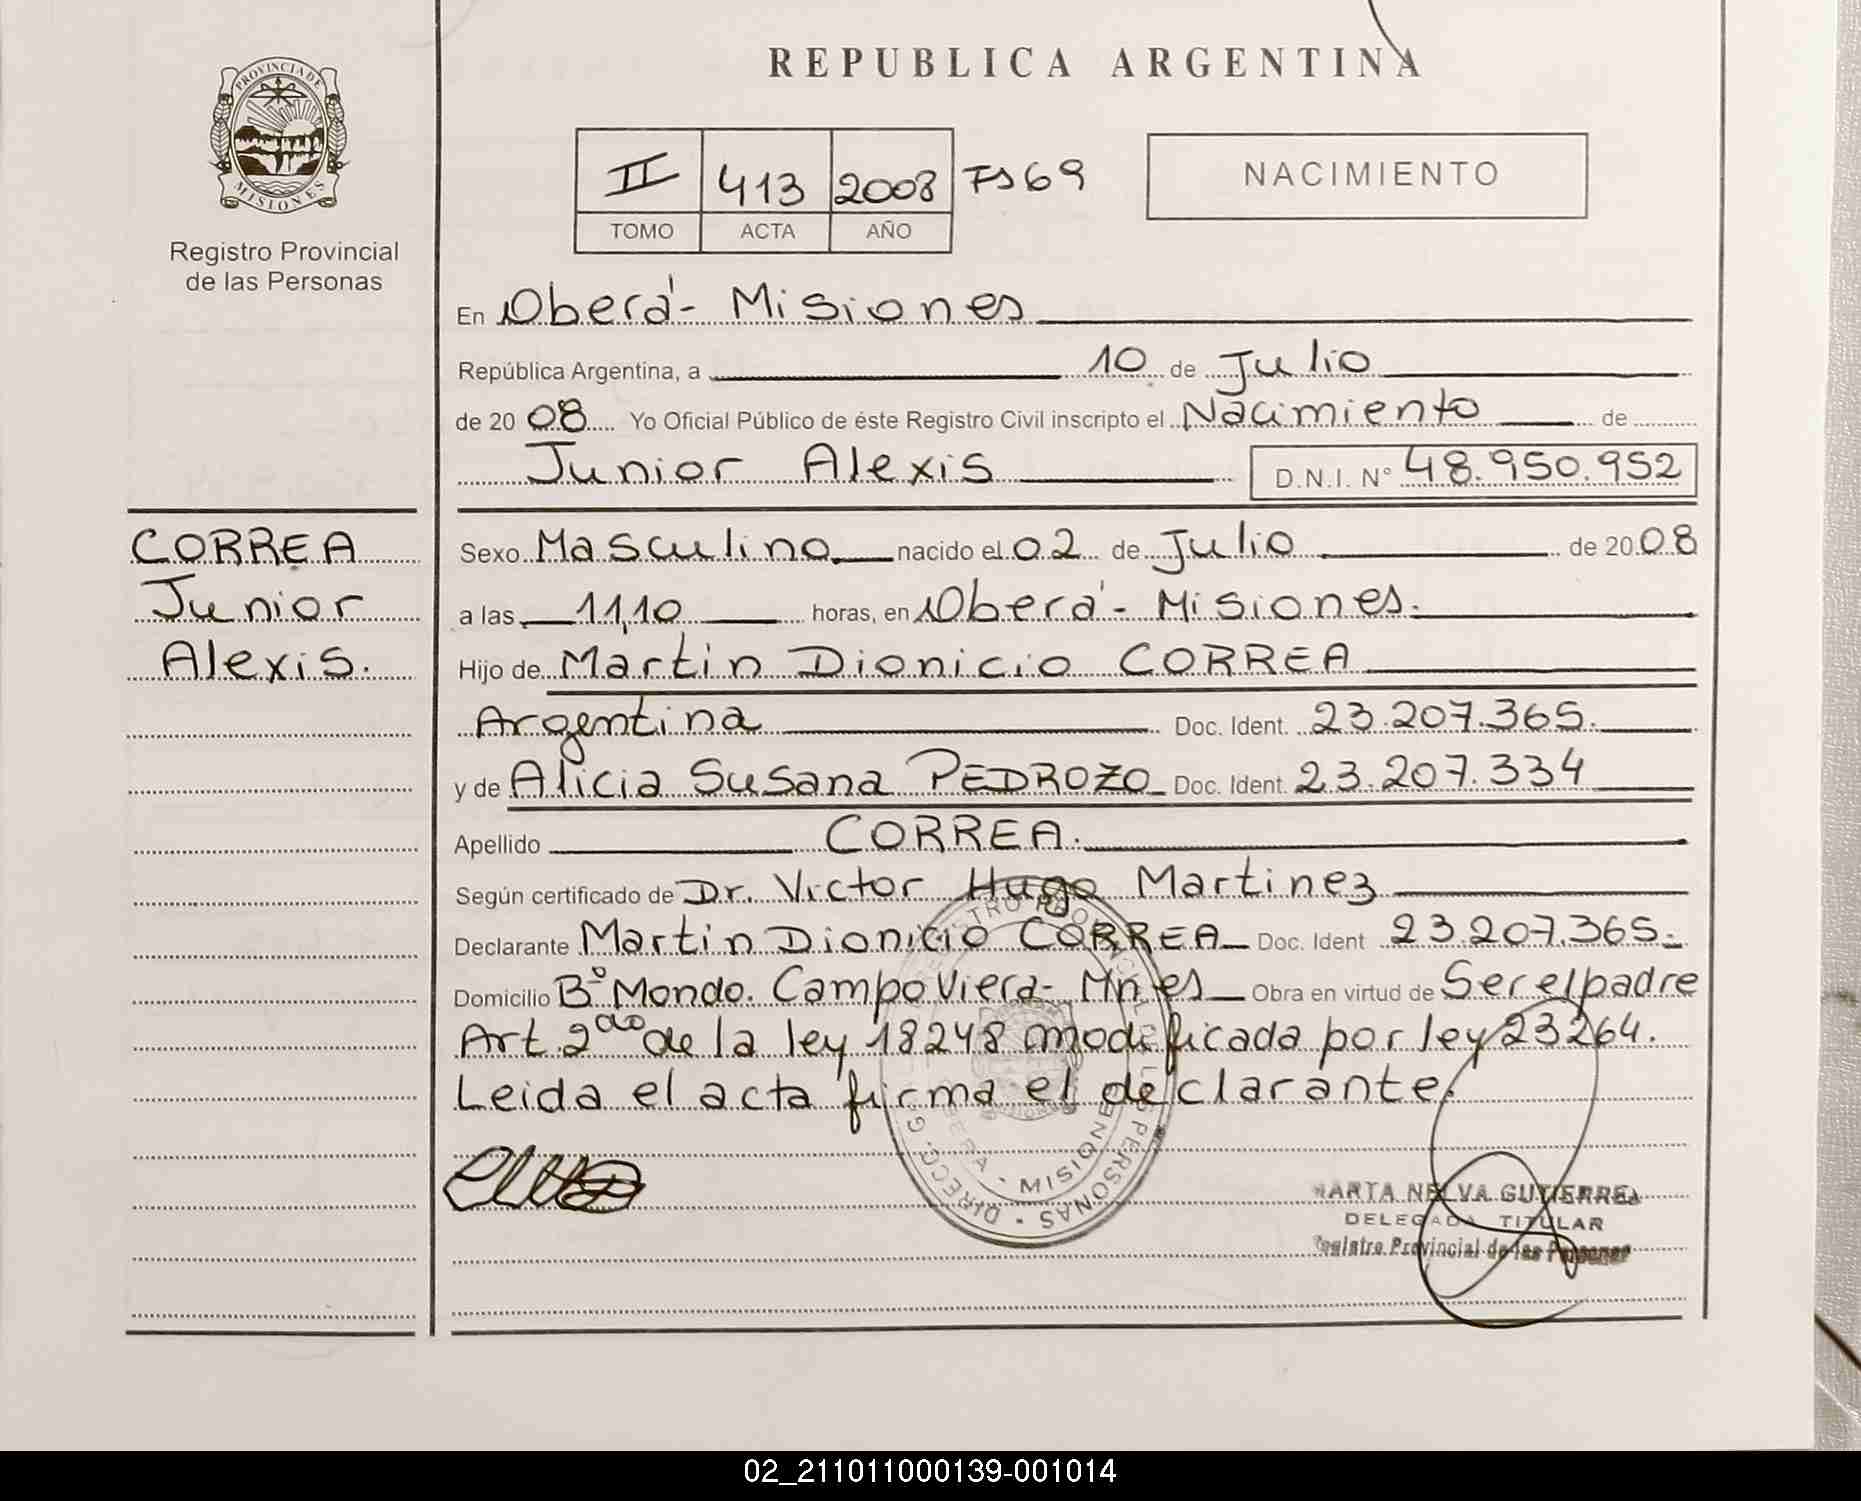 REPUBLICA ARGENTINA
PROVINCIA DE
MISIONES
Registro Provincial
de las Personas
II 413 2008 Fs 69
TOMO ACTA AÑO
NACIMIENTO
En Oberá - Misiones
República Argentina, a 10 de Julio
de 20 08 Yo Oficial Público de éste Registro Civil inscripto el Nacimiento de
Junior Alexis D.N.I. N° 48.950.952
CORREA
Junior
Alexis.
Sexo Masculino nacido el 02 de Julio de 20 08
a las 11,10 horas, en Oberá - Misiones.
Hijo de Martin Dionicio CORREA
Argentina Doc. Ident. 23.207.365.
y de Alicia Susana PEDROZO Doc. Ident. 23.207.334
Apellido CORREA.
Según certificado de Dr. Victor Hugo Martinez
Declarante Martin Dionicio CORREA Doc. Ident 23.207.365.
Domicilio B° Mondo. Campo Viera - Mnes Obra en virtud de Ser el padre
Art. 2do de la ley 18248 modificada por ley 23264.
Leida el acta firma el declarante.
MISIONES
PERSONAS
MARTA NELVA GUTIERREZ
DELEGADA TITULAR
Registro Provincial de las Personas
02_211011000139-001014